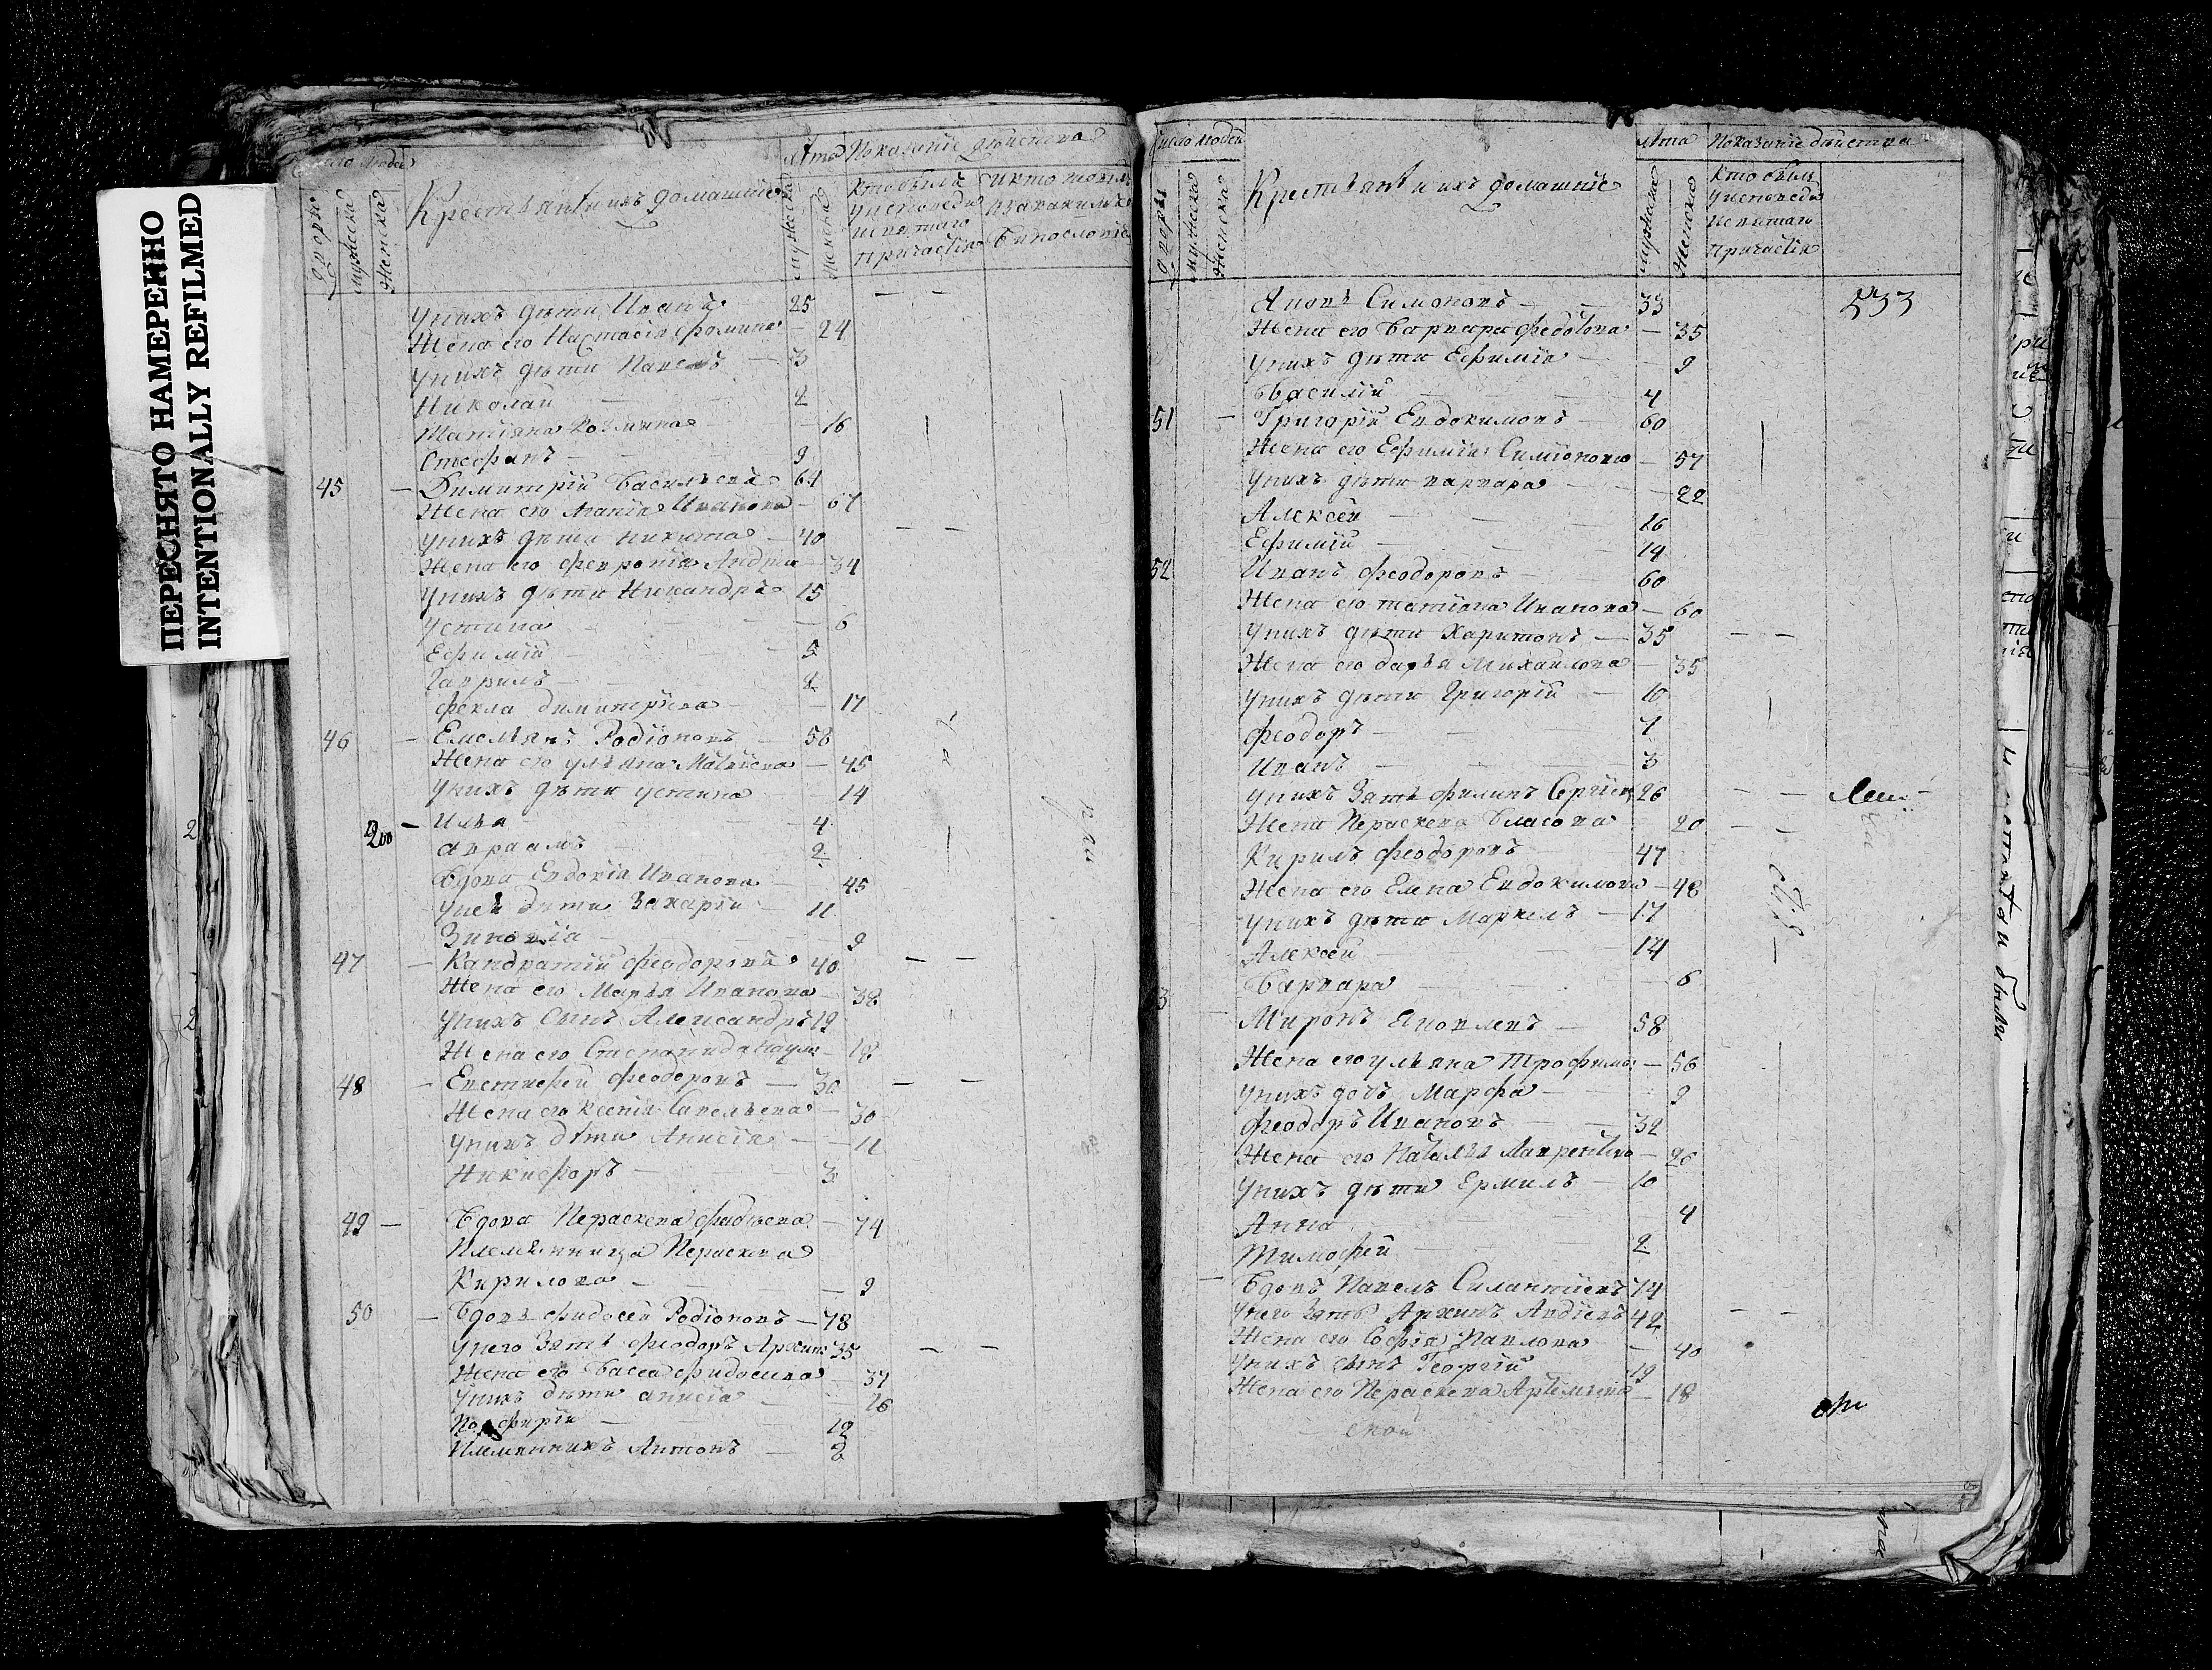 ПЕРЕСНЯТО НАМЕРЕННО
INTENTIONALLY REFILMED
Число людей
Лѣта
Показаніе дѣйства
дворы
мужеска
женска
Крестьянѣ и ихъ домашніе
мужеска
женска
Кто былъ
у исповѣди
и святаго
причастія
у нихъ дѣти Иванъ 25
Жена его Настасія Фомина 24
у нихъ дѣти Павелъ 3
Николай 2
Татіяна Козмина 16
Стефанъ 9
45 Димитрій Васильевъ 64
Жена его Агапія Иванова 67
у нихъ дѣти Никита 40
Жена его Февронія Андрее 34
у нихъ дѣти Никандръ 15
Устина 6
Ефимій 5
Гаврилъ 2
Фекла Димитріева 17
46 Емельянъ Родіоновъ 58
Жена его Ульяна Матвіева 45
у нихъ дѣти Устина 14
200 Илья 4
Авраамъ 2
Вдова Евдокія Иванова 45
у ней дѣти Захарій 11
Зиновія 9
47 Кандратій Феодоровъ 40
Жена его Марья Иванова 38
у нихъ сынъ Александръ 19
Жена его Степанида Наум 18
48 Евстифей Феодоровъ 30
Жена его Ксенія Савельева 30
у нихъ дѣти Анисія 11
Никифоръ 3
49 Вдова Пераскева Фадѣева 74
Племянница Пераскева
Кирилова 9
50 Вдовъ Фидосей Родіоновъ 78
у него зять Феодоръ Архип 35
Жена его Васса Фидосиева 37
у нихъ дѣти Анисія 16
Порфирій 12
Племянникъ Антонъ 2
Число людей
Лѣта
Показаніе дѣйства
дворы
мужеска
женска
Крестьянѣ и ихъ домашніе
мужеска
женска
Кто былъ
у исповѣди
и святаго
причастія
533
Яковъ Симоновъ 33
Жена его Варвара Федотова 35
у нихъ дѣти Ефимія 9
Василій 4
51 Григорій Евдокимовъ 60
Жена его Ефимія Симіонова 57
у нихъ дѣти Варвара 22
Алексей 16
Ефимій 14
52 Иванъ Феодоровъ 60
Жена его Татіяна Иванова 60
у нихъ дѣти Харитонъ 35
Жена его Дарья Михайлова 35
у нихъ дѣти Григорій 10
Феодоръ 7
Иванъ 3
у нихъ зять Филипъ Сергіев 26
Жена Пераскева Власова 20
Кирилъ Феодоровъ 47
Жена его Елена Евдокимова 48
у нихъ дѣти Маркелъ 17
Алексей 14
Варвара 6
3 Миронъ Яковлевъ 58
Жена его Ульяна Трофимо 56
у нихъ дочь Марфа 9
Феодоръ Ивановъ 32
Жена его Наталья Лаврентіева 26
у нихъ дѣти Ермилъ 10
Анна 4
Тимофей 2
Вдовъ Павелъ Силантіевъ 74
у него зять Архипъ Авдіевъ 42
Жена его Софія Павлова 40
у нихъ сынъ Георгій 19
Жена его Пераскева Артемьева 18